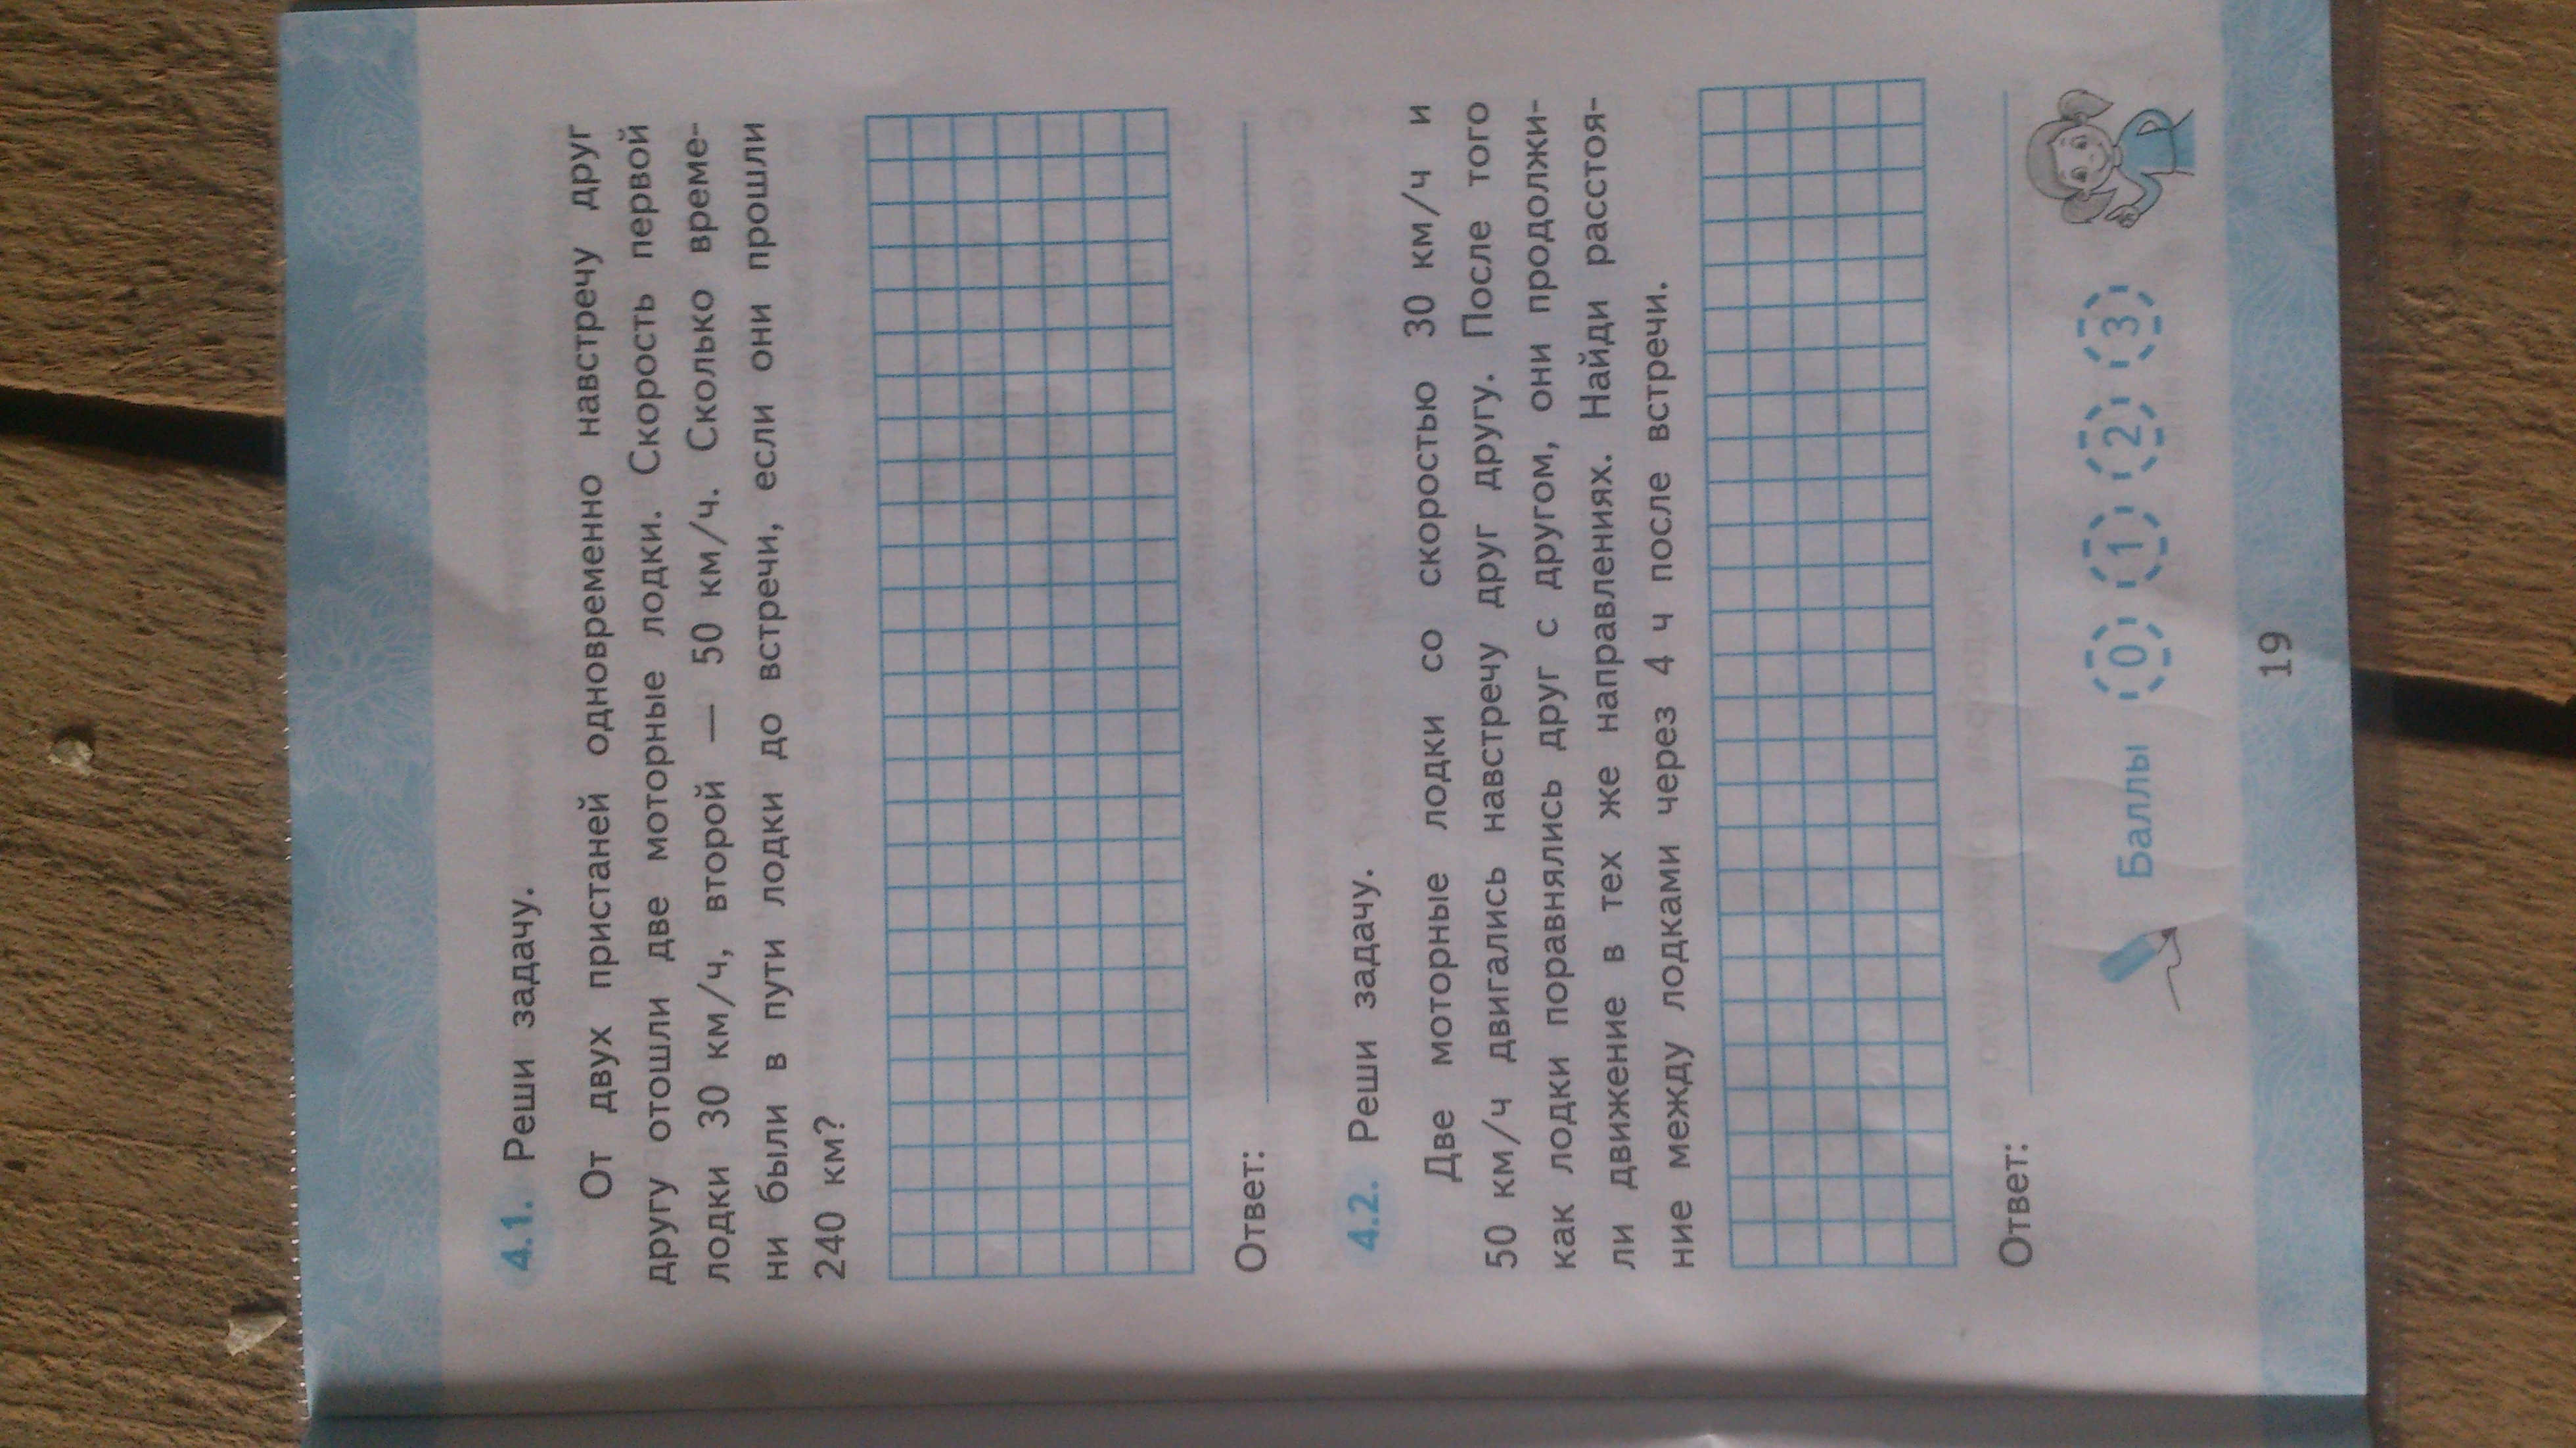 4.1. Реши задачу.
От двух пристаней одновременно навстречу друг
другу отошли две моторные лодки. Скорость первой
лодки 30 км/ч, второй — 50 км/ч. Сколько време-
ни были в пути лодки до встречи, если они прошли
240 км?
Ответ:
4.2. Реши задачу.
Две моторные лодки со скоростью 30 км/ч и
50 км/ч двигались навстречу друг другу. После того
как лодки поравнялись друг с другом, они продолжи-
ли движение в тех же направлениях. Найди расстоя-
ние между лодками через 4 ч после встречи.
Ответ:
Баллы 0 1 2 3
19